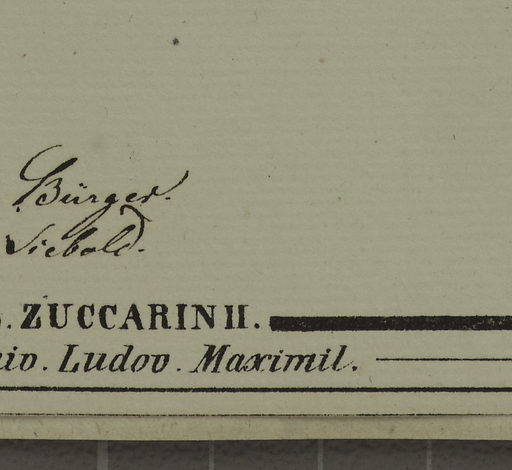 Bürger.
Siebold.
. ZUCCARINII.
iv. Ludov. Maximil.